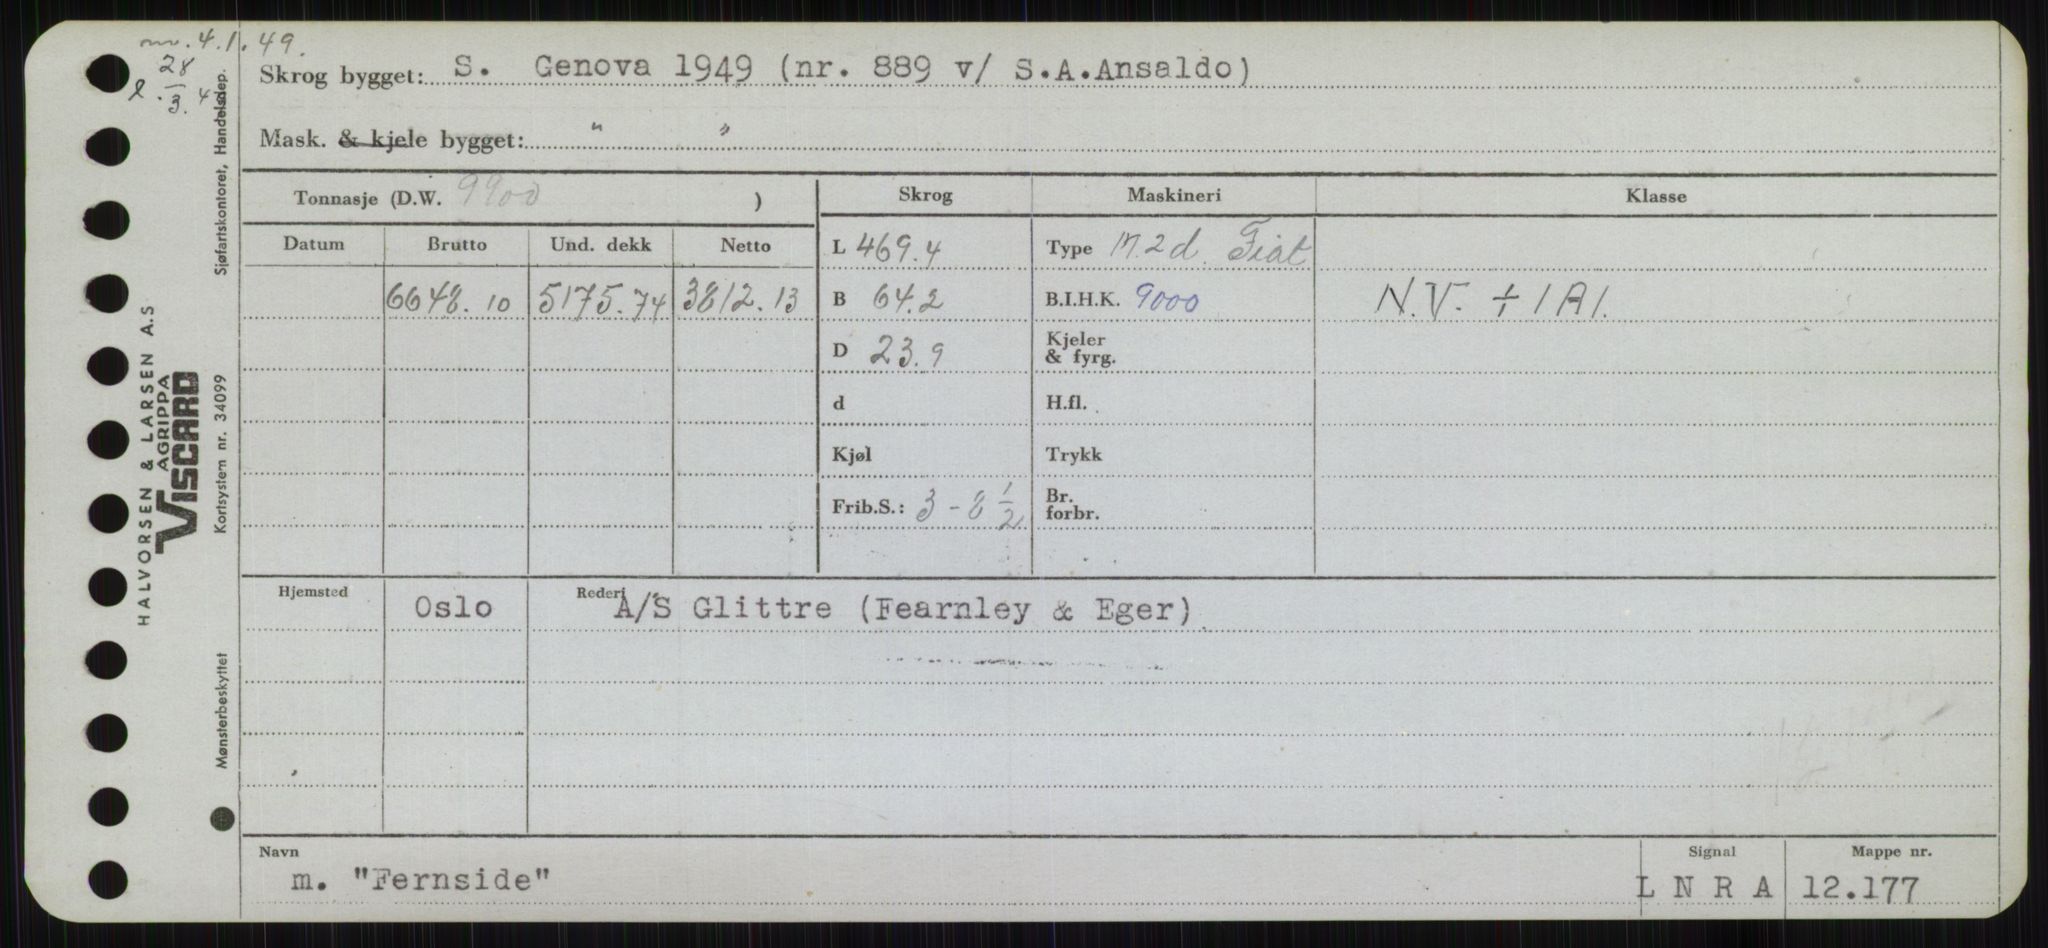 nv. 4.1.49.
28
l. 3. 4
Skrog bygget: S. Genova 1949 (nr. 889 v/ S.A.Ansaldo)
Mask. & kjele bygget: " "
Tonnasje (D.W. 9900 )
Skrog Maskineri Klasse
Datum Brutto Und. dekk Netto
L 469.4 Type M. 2 d. Fiat
6648.10 5175.74 3812.13
B 64.2 B.I.H.K. 9000 N.V. + 1A1.
D 23.9 Kjeler & fyrg.
d H.fl.
Kjøl Trykk
Frib.S.: 3-8 1/2 Br. forbr.
Hjemsted Oslo Rederi A/S Glittre (Fearnley & Eger)
Navn Signal Mappe nr.
m. "Fernside" L N R A 12.177
Sjøfartskontoret, Handelsdep.
HALVORSEN & LARSEN A.S
AGRIPPA
VISCARD
Kortsystem nr. 34099
Mønsterbeskyttet